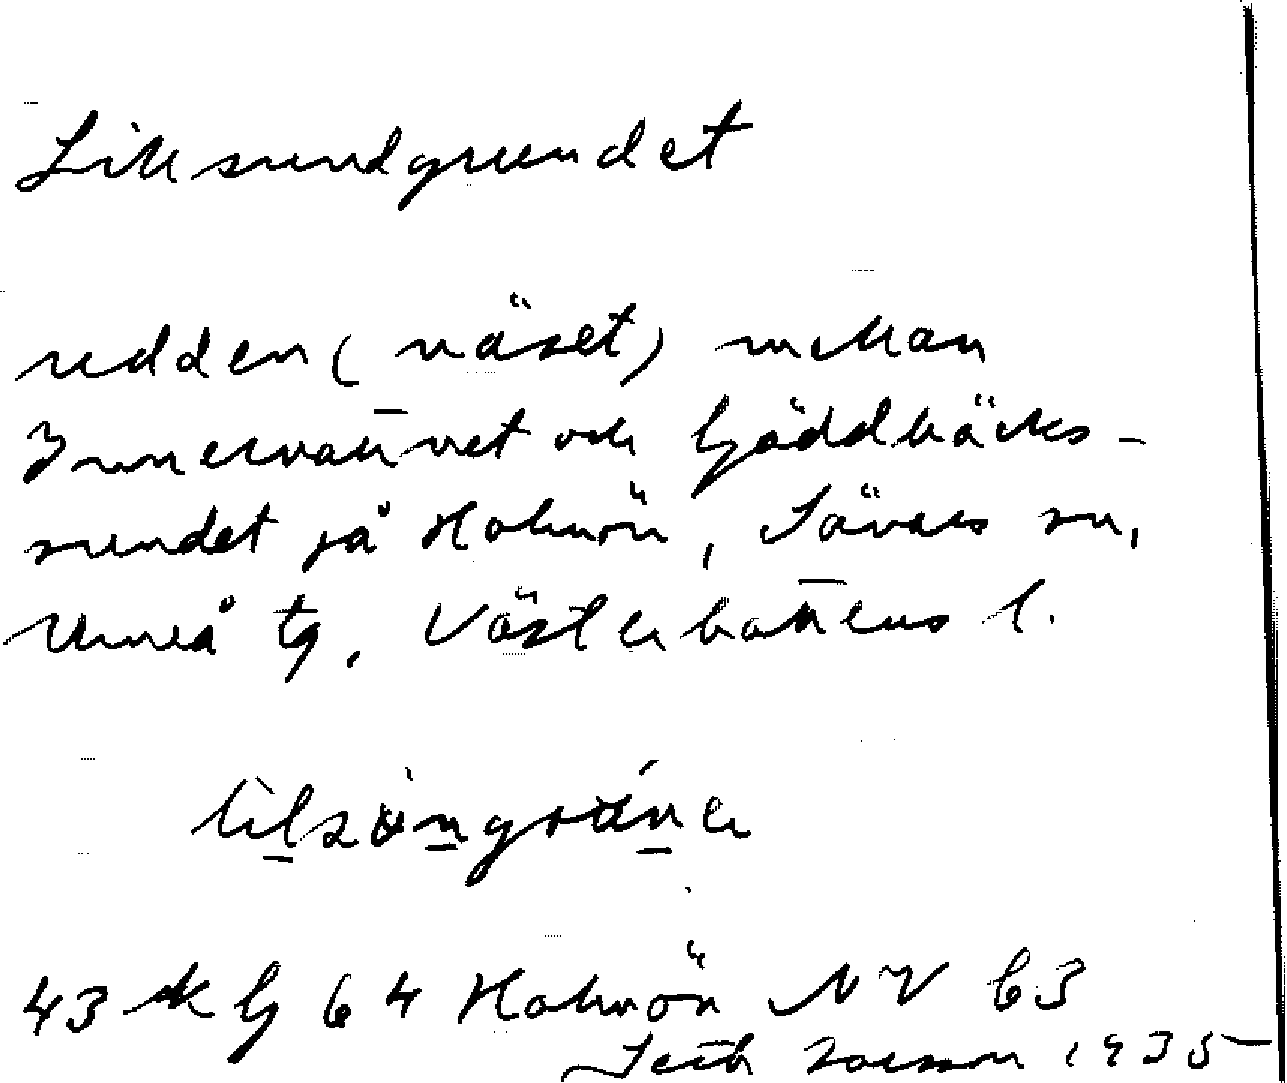 Lillsundgrundet
udden (näset) mellan
Innervattnet och Gäddbäcks-
sundet på Holmön, Sävars sn,
Umeå tg, Västerbottens l.
43 ek G 64 Holmön NV b3
1935